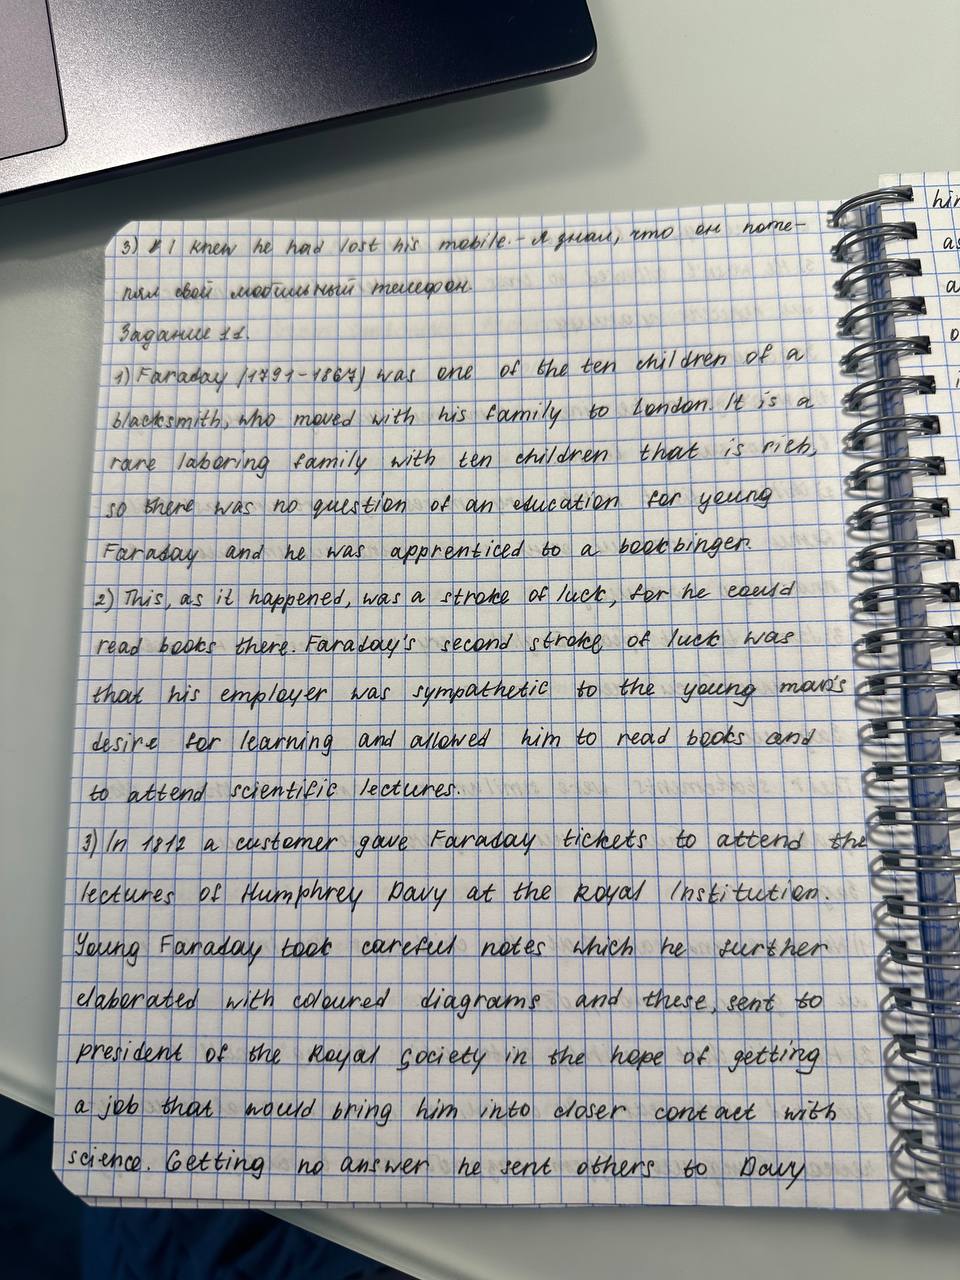 3) I knew he had lost his mobile. - Я знал, что он поте-
рял свой мобильный телефон.
Задание 11.
1) Faraday (1791-1867) was one of the ten children of a
blacksmith, who moved with his family to London. It is a
rare laboring family with ten children that is rich,
so there was no question of an education for young
Faraday and he was apprenticed to a bookbinger.
2) This, as it happened, was a stroke of luck, for he could
read books there. Faraday's second stroke of luck was
that his employer was sympathetic to the young man's
desire for learning and allowed him to read books and
to attend scientific lectures.
3) In 1812 a customer gave Faraday tickets to attend the
lectures of Humphrey Davy at the Royal Institution.
Young Faraday took careful notes which he further
elaborated with coloured diagrams and these, sent to
president of the Royal Society in the hope of getting
a job that would bring him into closer contact with
science. Getting no answer he sent others to Davy